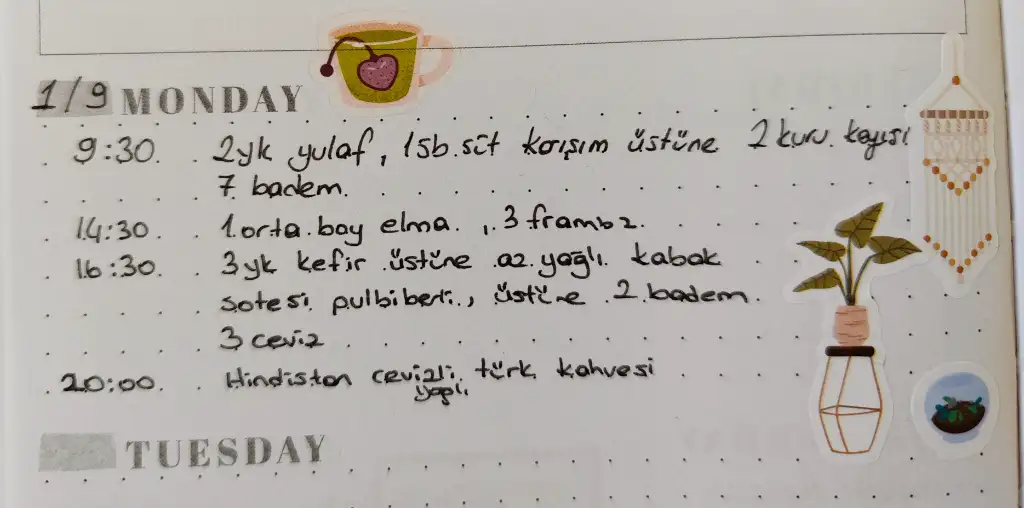 1/9 MONDAY
9:30. 2yk yulaf, 1sb. süt karışım üstüne 2 kuru kayısı
7 badem.
14:30. 1 orta boy elma, 3 framb
16:30. 3 yk kefir üstüne az yağlı kabak
sotesi pulbiberli, üstüne 2 badem.
3 ceviz
20:00. Hindistan cevizli türk kahvesi
yağlı
TUESDAY